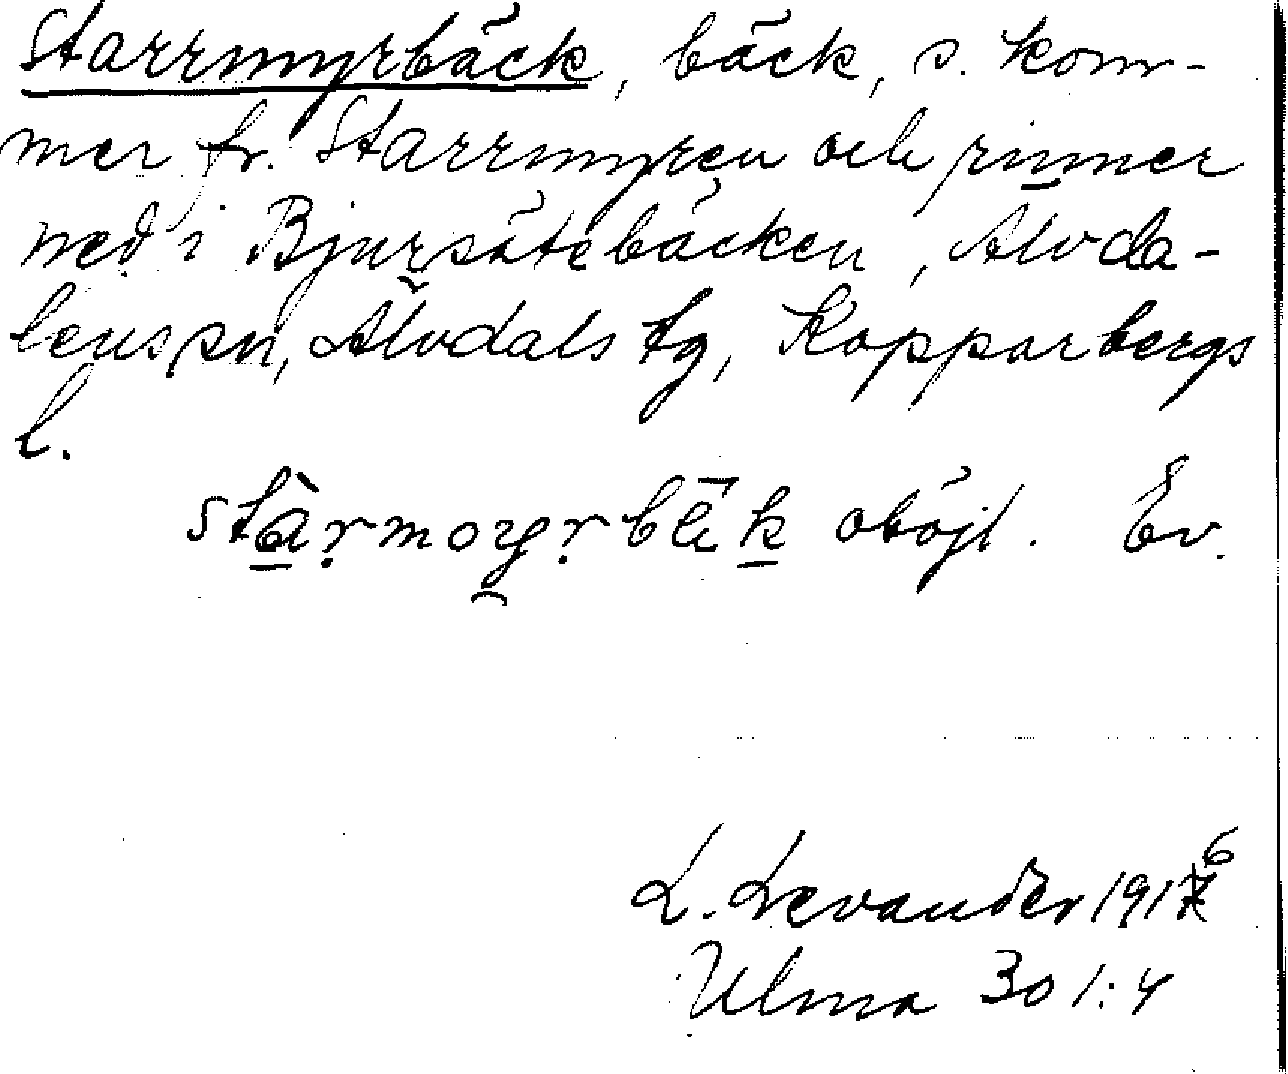 Starrmyrbäck, bäck, s. kom-
mer fr. Starrmyren och rinner
ned i Bjursätebäcken, Älvda-
lens sn, Älvdals tg, Kopparbergs
l.
obőjl. Ev.
L. Levander 1916
Ulma 301:4